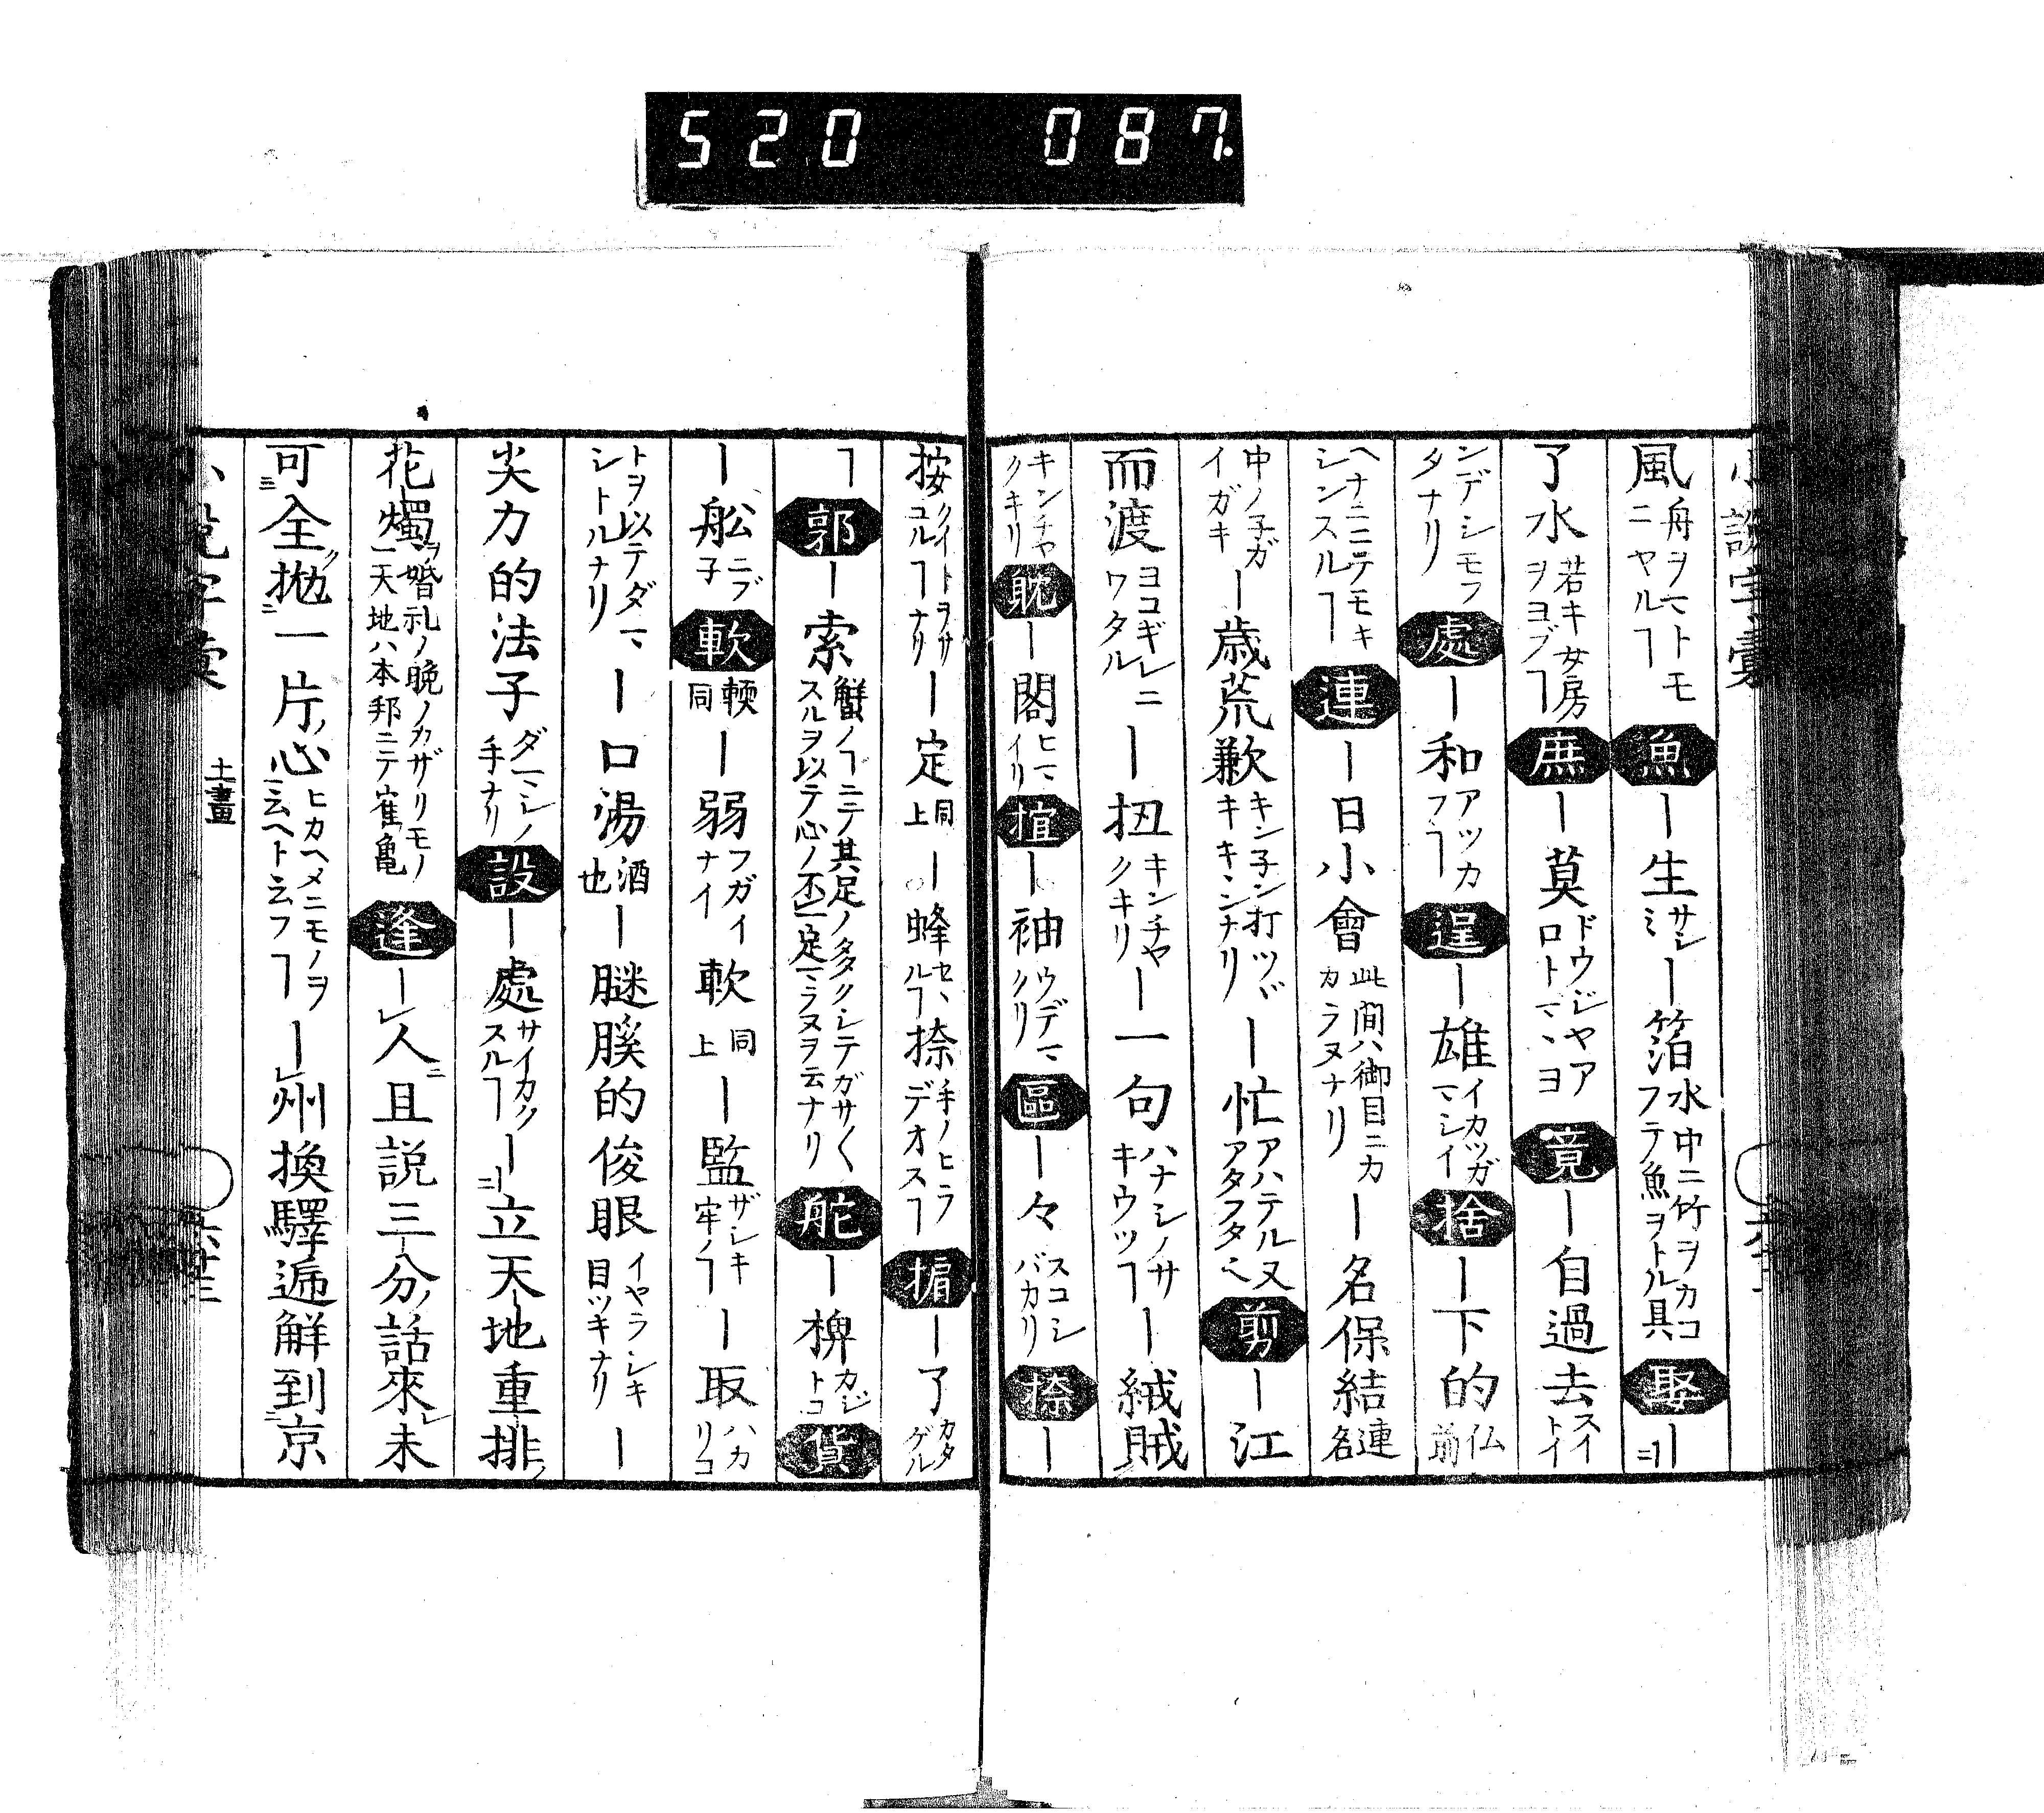 520 087.
小説字彙
風 舟ヲマトモニヤルヿ 魚 ー生 サシミ ー箔 水中ニ竹ヲカコフテ魚ヲトル具 娶 ー
了水 若キ女房ヲヨブヿ 庶 ー莫 ドウジヤアロトマヽヨ 竟 ー自過去 スイトイ
ンデシモフタナリ 處 ー和 アツカフヿ 逞 ー雄 イカツガマシイ 捨 ー下的 仏前
ヘナニニテモキシンスルヿ 連 ー日小會 此間ハ御目ニカカラヌナリ ー名保結 連名
中ノ子ガイガキ ー歳荒歉 キン子ン打ツヾキキヽンナリ ー忙 アハテルヌアタフタヘ 剪 ー江
而渡 ヨコギレニワタル ー扭 キンチヤクキリ ー一句 ハナシノサキウツヿ ー絨賊
キンチヤクキリ 躭 ー閣 ヒマイリ 揎 ー袖 ウデマクリ 區 ー々 スコシバカリ 捺 ー
按 クイトヲサユルヿナリ ー定 同上 ー蜂 セヽルヿ 捺 手ノヒラデオスヿ 掮 ー了 カタゲル
ヿ 郭 ー索 蟹ノヿニテ其足ノ多クシテガサ〱スルヲ以テ心ノ不定マラヌヲ云ナリ 舵 ー椑 カジトコ 貨
ー舩 ニブ子 軟 輭同 ー弱 フガイナイ 軟 同上 ー監 ザシキ牢ノヿ ー取 ハカリコ
トヲ以テダマシトルナリ ー口湯 酒也 ー瞇䁐的俊眼 イヤラシキ目ツキナリ ー
尖力的法子 ダマシノ手ナリ 設 ー處 サイカクスルヿ ー立天地重排
花燭 婚礼ノ晩ノカザリモノ 天地ハ本邦ニテ隺亀 逢 ー人且説三分話來未
可全抛一片心 ヒカヘメニモノヲ云ヘト云フヿ ー州換驛逓解到京
小説字彙 土畫